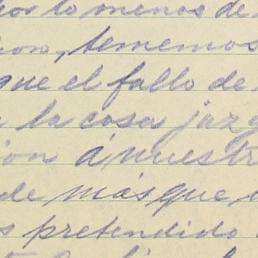 por lo menos de
tememos
que el fallo de
a la cosa juzg
ion á nuestr
de más que
s pretendido